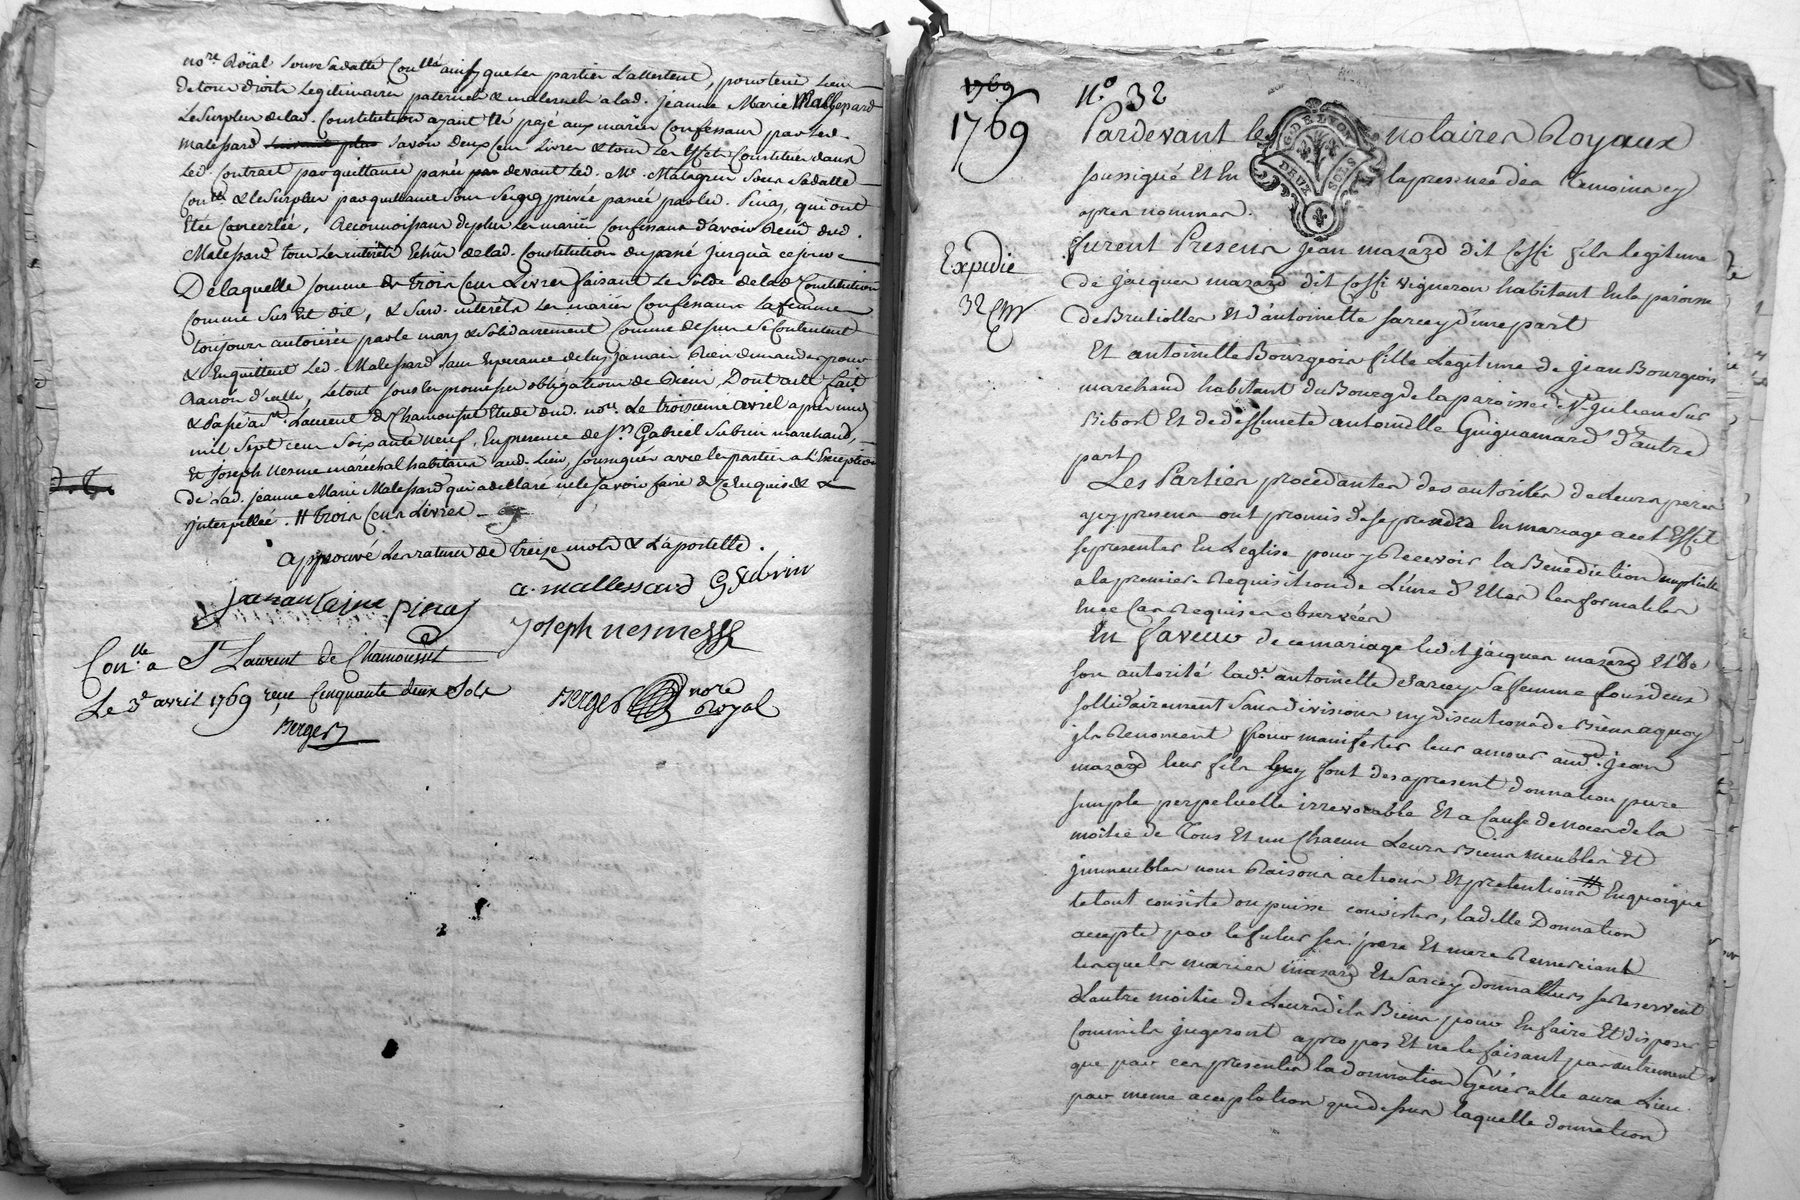 no.re Roial sous sa datte Con.llé ainsy que les parties l'attestent, pour tenir lieu
de tous droits legitimaires paternels & maternels a lad. jeanne Marie Mallessard
Le Surplus de lad. Constitution ayant été payé aux mariés Confessans par led.
Malessard savoir deux cens Livres & tous les effets Constitués dans
led. Contrat par quittance passée par devant led. Me. Malagrin sous sa datte
Con.llé & le Surplus par quittance sous Seing privée passée par led. Pinay, qui ont
Etée Concertée, Reconnoissans de plus les mariés Confessans d'avoir Reçu dud.
Malessard tous les interets Echus de lad. Constitution du passé jusqu'à ce jour
De laquelle somme de trois Cens Livres faisant le Solde de lad. Constitution
Comme Sus est dit, & Sud. interêts les mariés Confessans la femme
toujours autorisée par le mary & solidairement Comme dessus se Contentent
& En quittent led. Malessard sans Esperance de luy jamais Rien demander pour
Raison d'icelle, le tout sous les promesses obligations de Biens, Dont acte fait
& Passé a St. Laurent de Chamousset Etude dud. no.re Le troisieme avril apres midy
mil Sept cens Soixante neuf. En presence de Srs Gabriel Subrin marchand,
Et Joseph Nesme maréchal habitans aud. Lieu, soussignés avec les parties a l'Exception
de lad. jeanne Marie Malessard qui a declaré ne le savoir faire de ce Enquise &
jnterpellée. # trois Cens Livres
approuvé la rature de treize mots & l'apostille.
jean antoine pinay
a. mallessard G Subrin
Joseph nesme
Con.llé a St Laurent de Chamousset
Le 3e avril 1769 reçu Cinquante deux Sols
Berger
Berger nore Royal
1769
1769
N.o 32
Pardevant le notaires Royaux
G. DE LYON
DEUX SOLS
soussigné Et En la presence des Temoins cy
apres nommes.
Expedié
32 Cm
furent Presens jean mazard dit Coffi fils Legitime
de jacques mazard dit Coffi vigneron habitant En la paroisse
de Bruliolles Et d'antoinette sarcey d'une part
Et antoinette Bourgeois fille Legitime de jean Bourgeois
marchand habitant du Bourg de la paroisse de St. julien sur
Bibost Et de deffuncte antoinette Guignamard d'autre
part
Les Parties procedantes des autorités de Leurs peres
ycy presens ont promis de se prendre En mariage a cet Effet
se presenter En L'eglise pour y Recevoir la Benediction nuptialle
a la premiere Requisition de L'une d'Elles les formalités
En ce Cas Requises observées
En faveur de ce mariage led.t jacques mazard Et de
son autorité lad.e antoinette sarcey sa femme tous deux
sollidairement sans divisions ny discutions de Biens a quoy
jls Renoncent pour manifester leur amour aud. jean
mazard leur fils luy font des apresent donnation pure
simple perpetuelle irrevocable Et a Cause de noces de la
moitié de Tous Et un Chacun Leurs Biens meubles Et
jmmeubles noms Raisons actions Et pretentions # En quoique
le tout consiste ou puisse consister, ladite Donnation
accepté par le futur ses pere Et mere Remerciant
lesquels mariés mazard Et Sarcey donnatteurs se reservent
L'autre moitié de Leursdits Biens pour En faire Et disposer
Comm'ils jugeront apropos Et ne le faisant pas autrement
que par ces presentes la donnation Généralle aura Lieu
par meme acceptation que dessus laquelle donnation